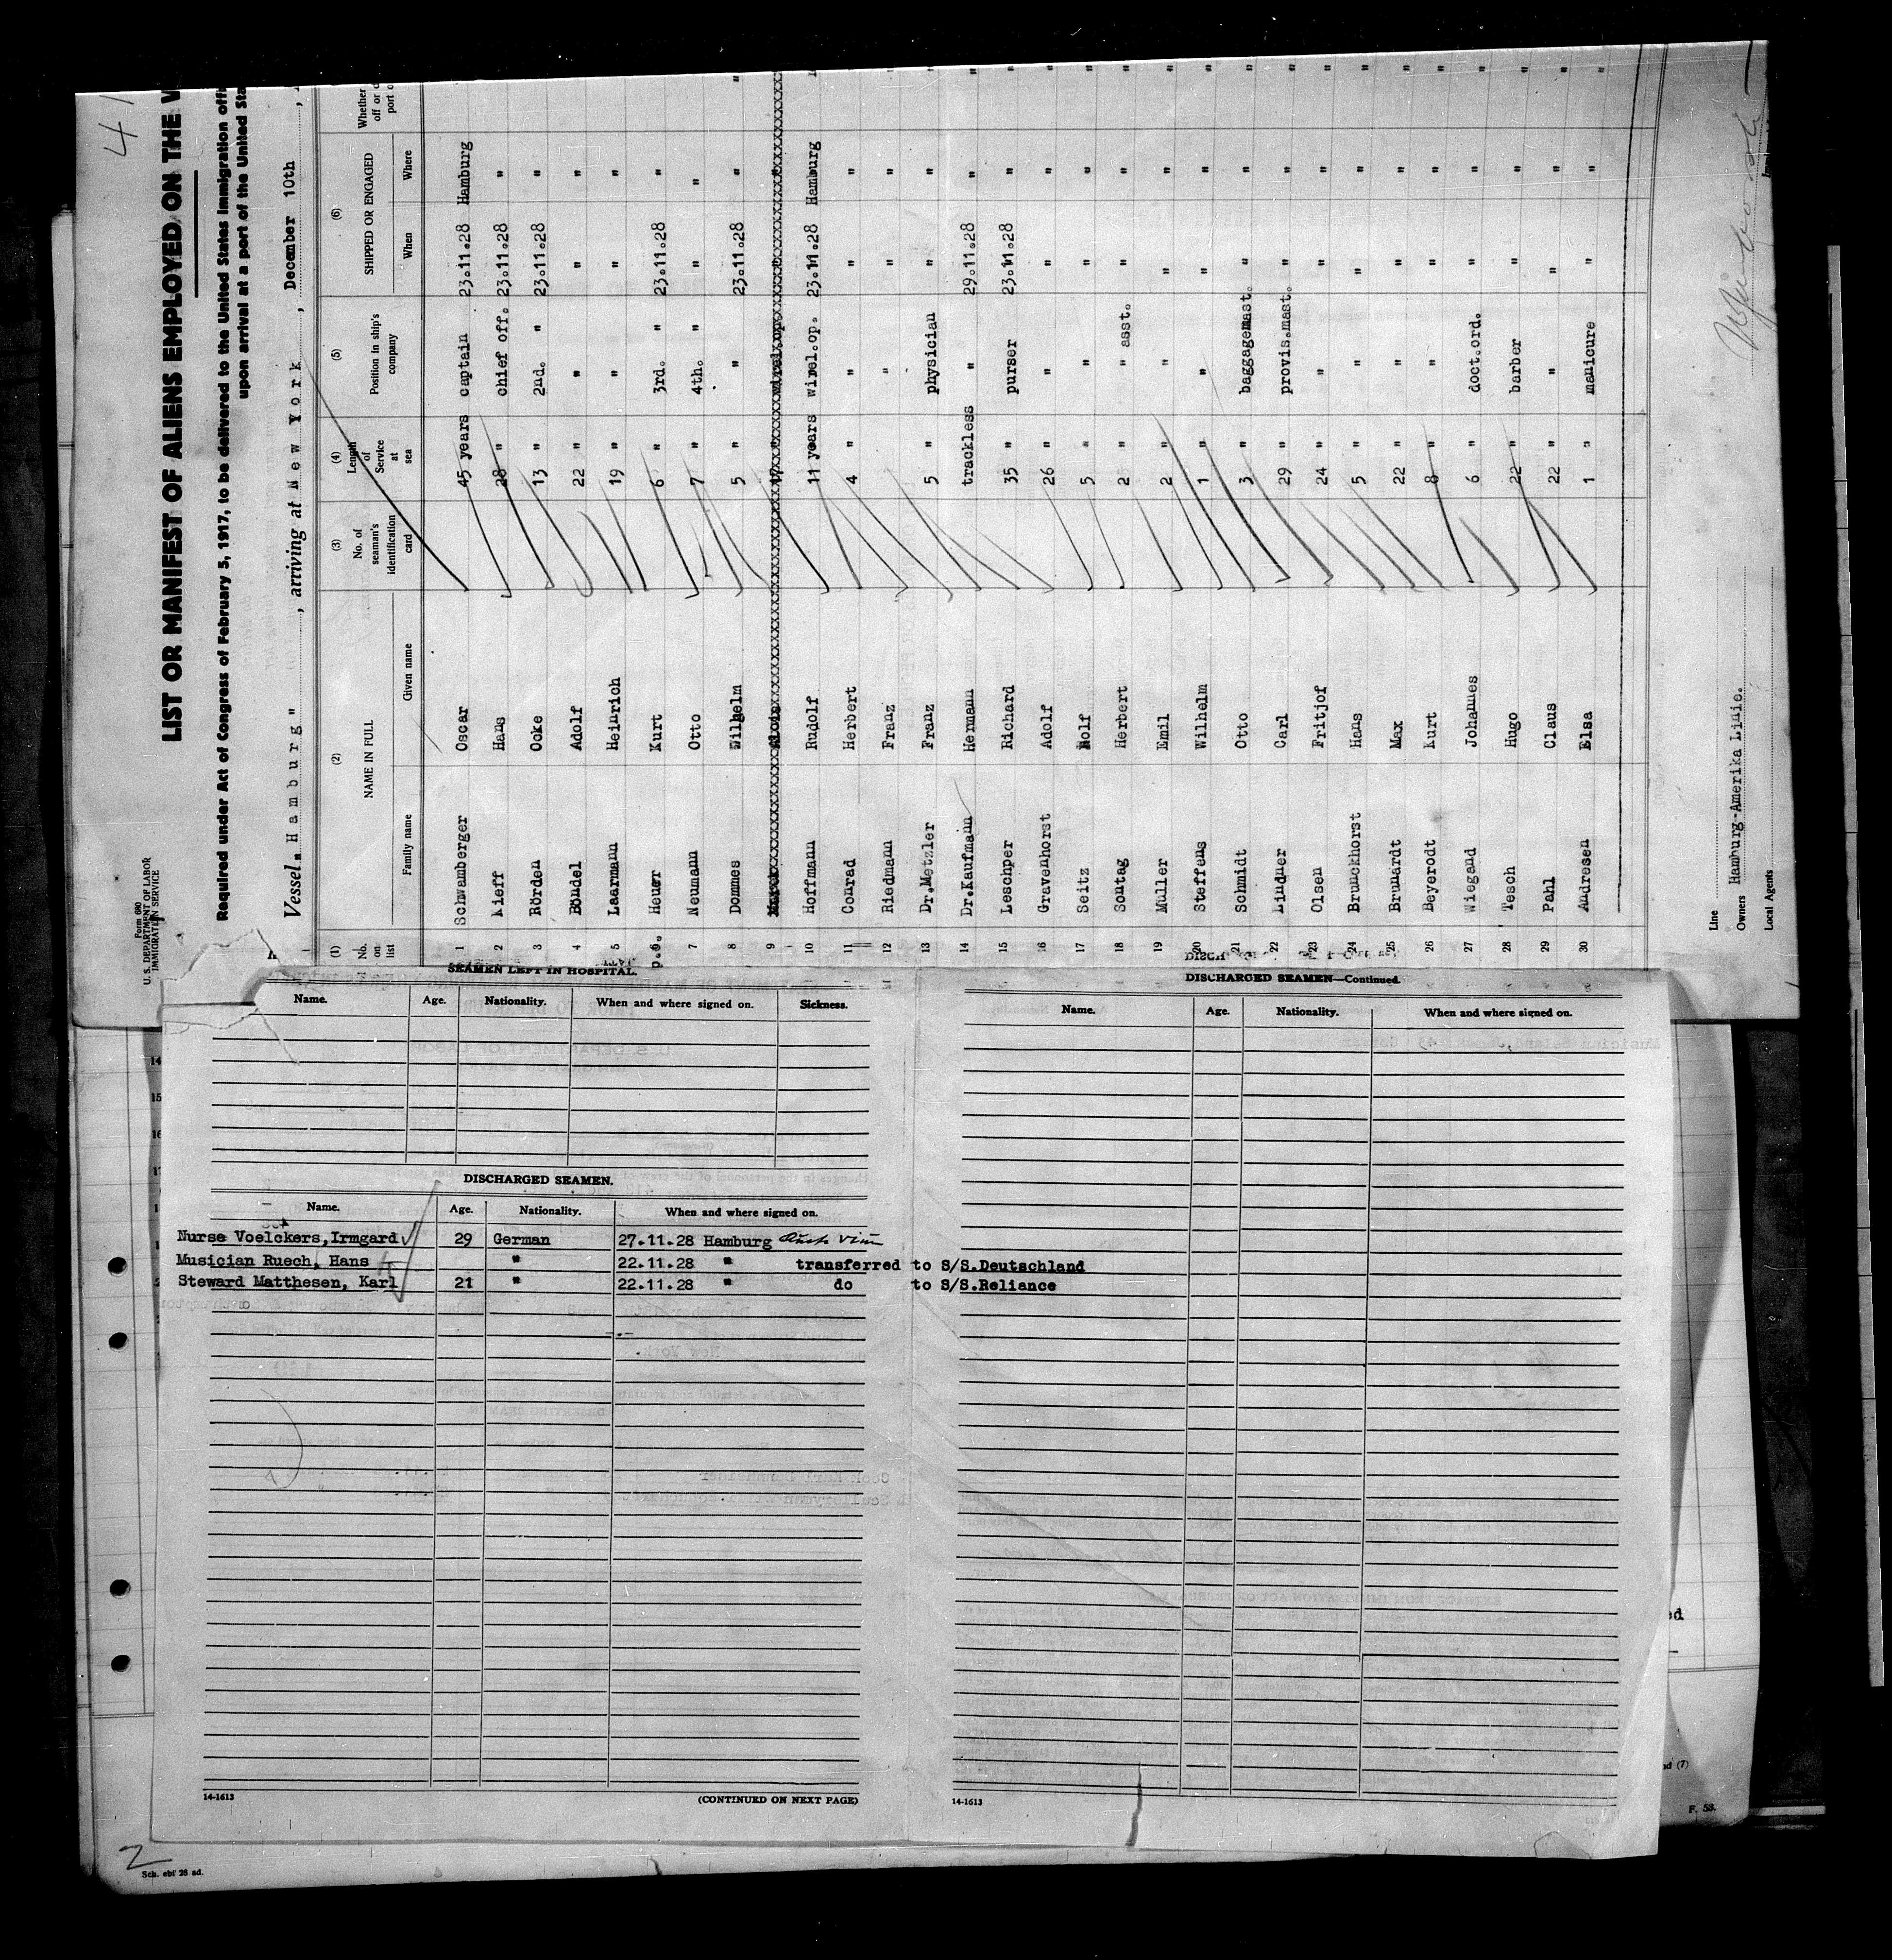 41
LIST OR MANIFEST OF ALIENS EMPLOYED ON THE
Form 680
U. S. DEPARTMENT OF LABOR
IMMIGRATION SERVICE
Required under Act of Congress of February 5, 1917, to be delivered to the United States immigration
upon arrival at a port of the United
Vessel " Hamburg " , arriving at New York , December 10th ,
(1) (2) (3) (4) (5) (6)
No. on list NAME IN FULL No. of seaman's identification card Length of Service at sea Position in ship's company SHIPPED OR ENGAGED Whether
Family name Given name When Where
1 Schwamberger Oscar 45 years captain 23.11.28 Hamburg
2 Kieff Hans 28 " chief off. 23.11.28 "
3 Rörden Ocke 13 " 2nd. " 23.11.28 "
4 Böndel Adolf 22 " " " "
5 Laarmann Heinrich 19 " " " "
6 Heuer Kurt 6 " 3rd. " 23.11.28 "
7 Neumann Otto 7 " 4th. " " "
8 Dommes Wilhelm 5 " " 23.11.28 " "
9
10 Hoffmann Rudolf 11 years wirel.op. 23.11.28 Hamburg
11 Conrad Herbert 4 " " " " "
12 Riedmann Franz " " "
13 Dr.Metzler Franz 5 " physician " " "
14 Dr.Kaufmann Hermann trackless " 29.11.28 " "
15 Leschper Richard 35 " purser 23.11.28 " "
16 Gravenhorst Adolf 26 " " " " "
17 Seitz Rolf 5 " " " " "
18 Sontag Herbert 2 " " asst. " " "
19 Müller Emil 2 " " " " "
20 Steffens Wilhelm 1 " " " " "
21 Schmidt Otto 3 " baggagemast. " " "
22 Lindner Carl 29 " provis.mast. " " "
23 Olsen Fritjof 24 " " " " "
24 Brunckhorst Hans 5 " " " " "
25 Brunardt Max 22 " " " " "
26 Beyerodt Kurt 8 " " " " "
27 Wiegand Johannes 6 " doct.ord. " " "
28 Tesch Hugo 22 " barber " " "
29 Pahl Claus 22 " " " " "
30 Andresen Elsa 1 " manicure " " "
Line
Owners Hamburg-Amerika Linie.
Local Agents
SEAMEN LEFT IN HOSPITAL.
Name. Age. Nationality. When and where signed on. Sickness.
DISCHARGED SEAMEN.
Name. Age. Nationality. When and where signed on.
Nurse Voelckers, Irmgard 29 German 27.11.28 Hamburg
Musician Ruech, Hans " 22.11.28 " transferred to S/S.Deutschland
Steward Matthesen, Karl 21 " 22.11.28 " do to S/S.Reliance
14-1613 (CONTINUED ON NEXT PAGE)
DISCHARGED SEAMEN—Continued.
Name. Age. Nationality. When and where signed on.
14-1613
14
15
F. 53.
2
Sch. abt 28 ad.